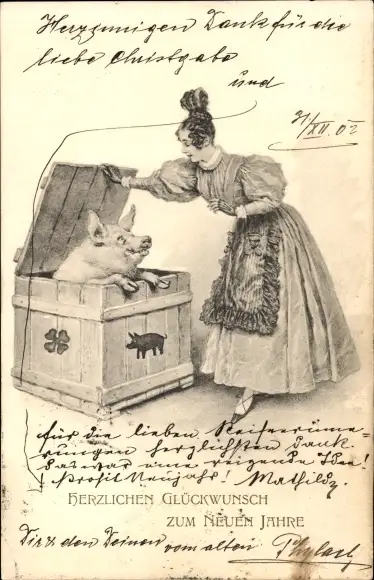 Herzinnigen Dank für die
liebe Christgabe
und
31/XII. 02
für die lieben
herzlichsten Dank.
Das war eine reizende Idee!
Prosit Neujahr! Mathilde.
HERZLICHEN GLÜCKWUNSCH
ZUM NEUEN JAHRE
Dir & den Deinen vom alten